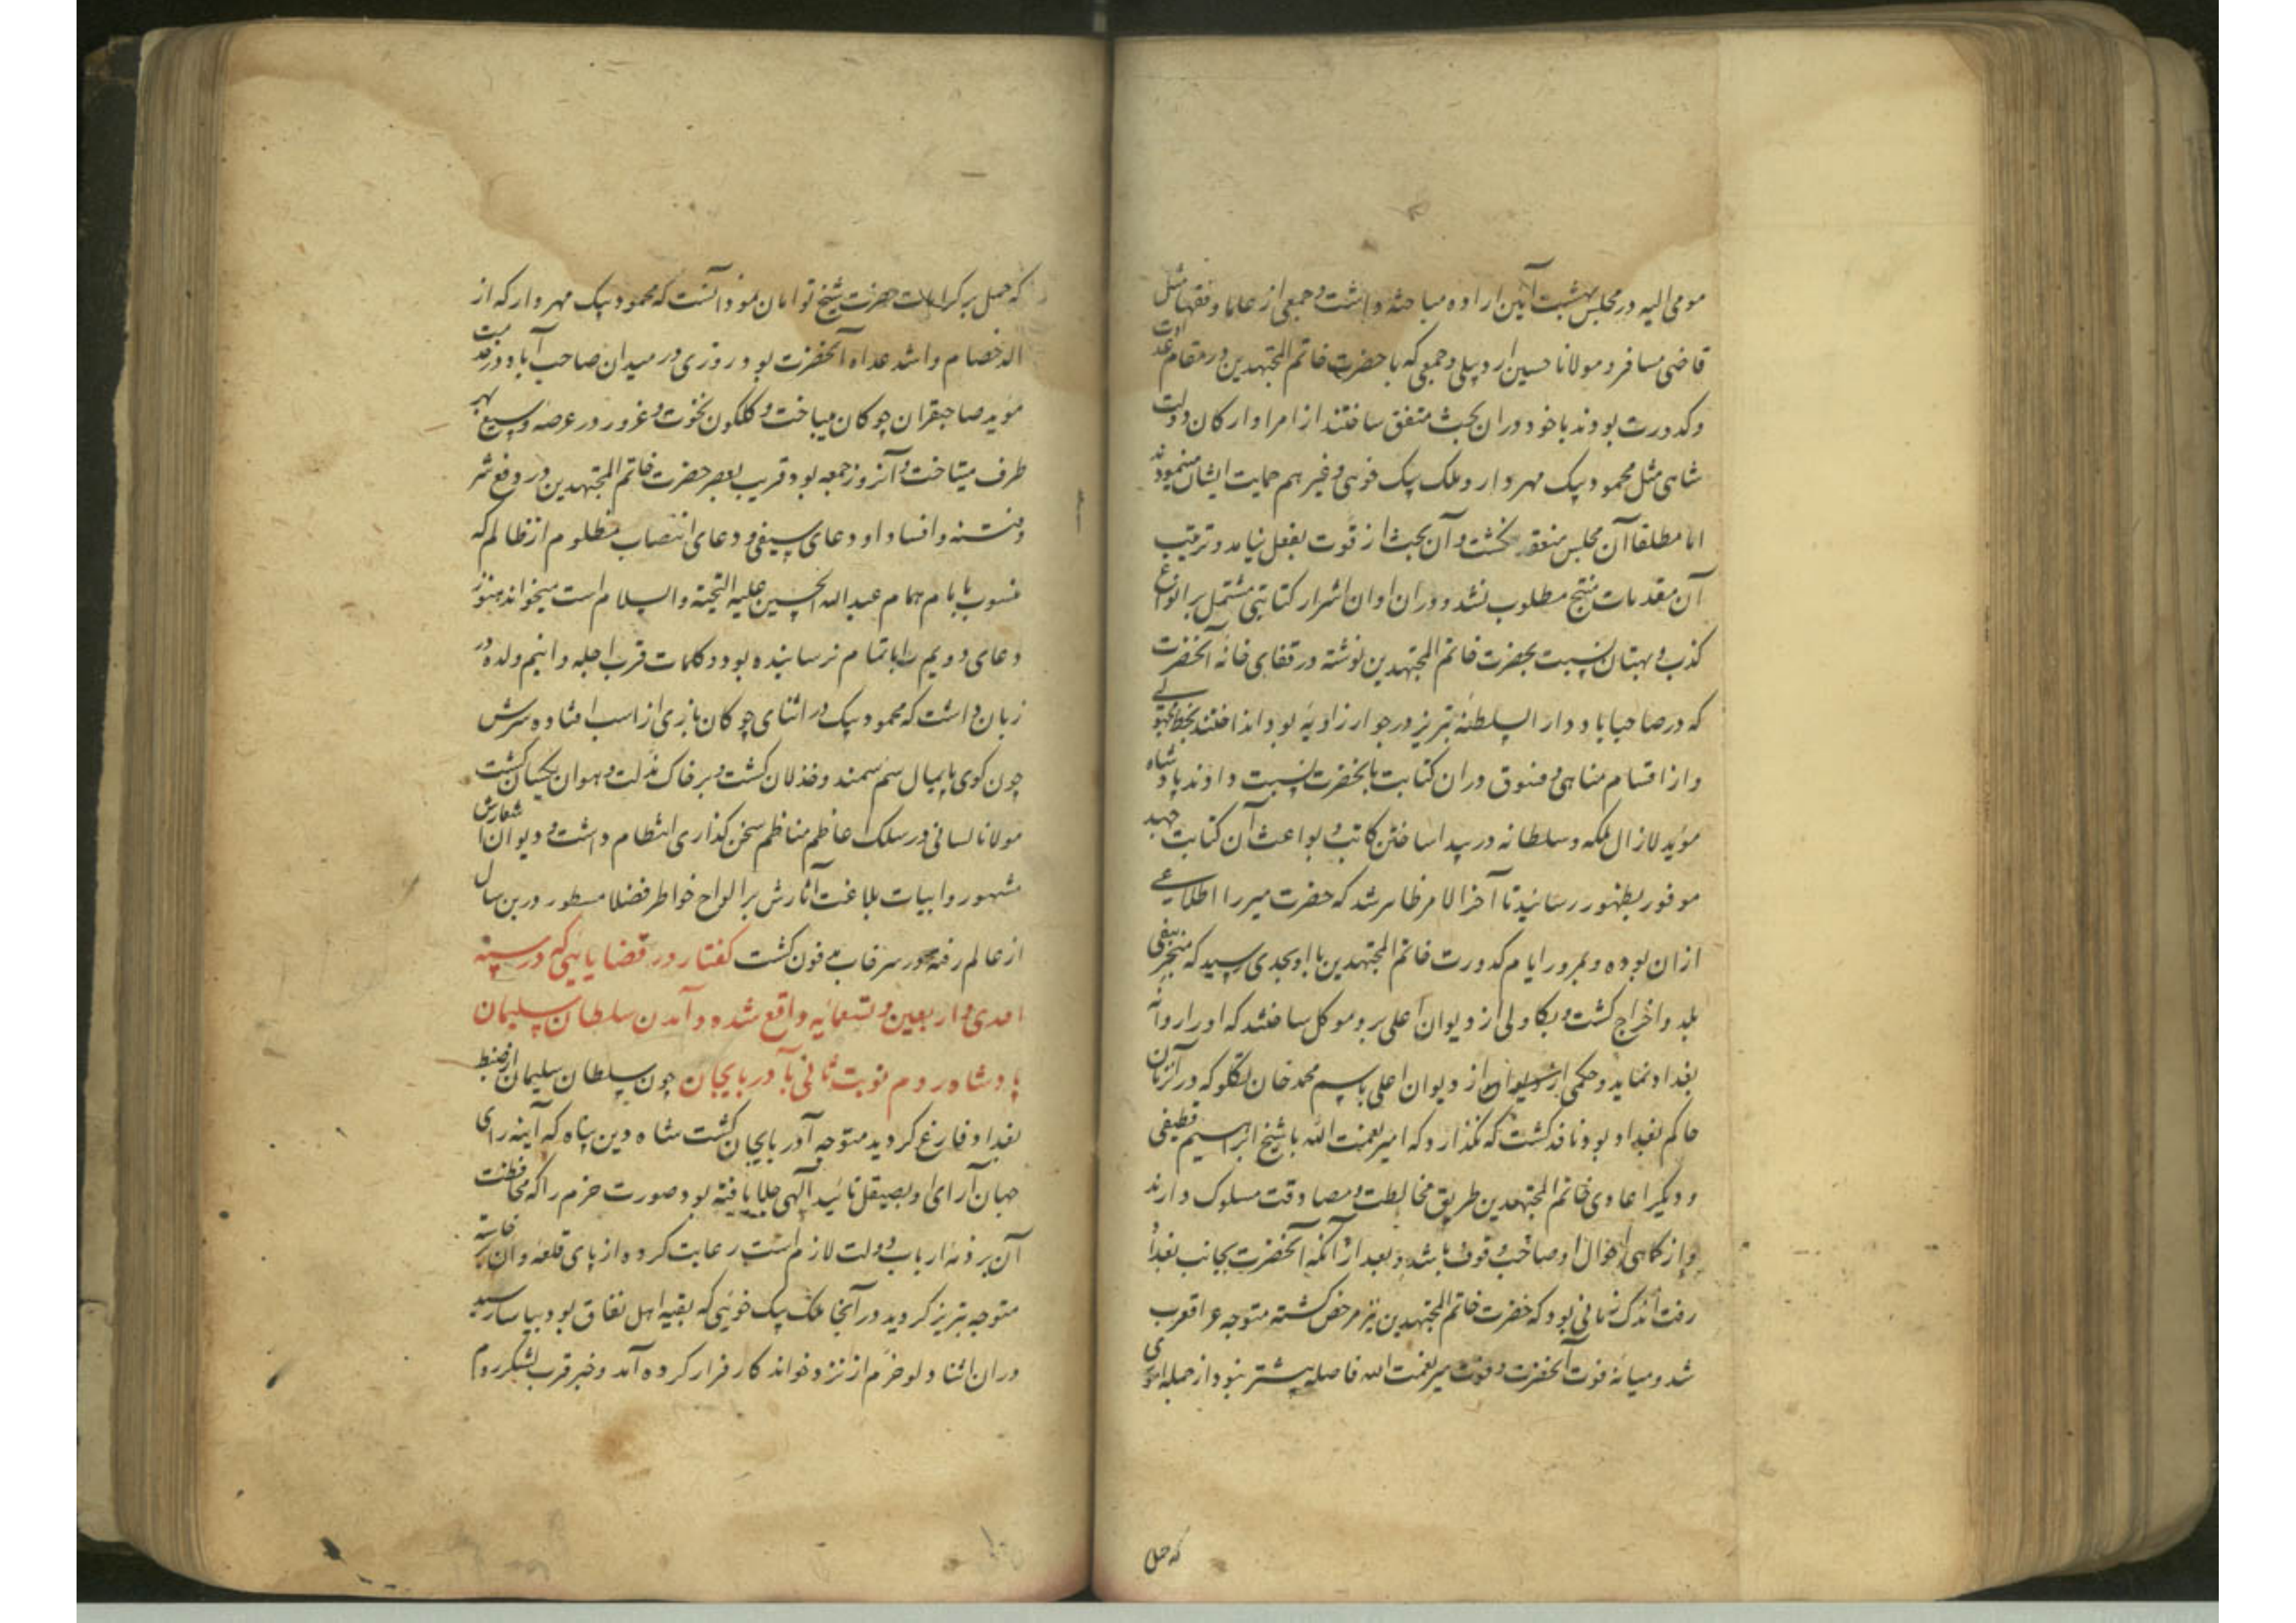 مومی الیه در مجلس بهشت آیین اراده مباحثه داشت و جمعی از علما و فقها مثل
قاضی مسافر و مولانا حسین اردبیلی و جمعی که با حضرت خاتم المجتهدین در مقام عداوت
و کدورت بودند با خود در ان بحث متفق ساختند از امرا و ارکان دولت
شاهی مثل محمود بیک مهردار و ملک بیک خوئی و غیر هم حمایت ایشان مینمودند
اما مطلقا آن مجلس منعقد نگشت و آن بحث از قوت بفعل نیامد و ترتیب
آن مقدمات منتج مطلوب نشد و در ان اوان اشرار کتابتی مشتمل بر انواع
کذب و بهتان نسبت بحضرت خاتم المجتهدین نوشته در قفای خانه آنحضرت
که در صاحباباد دار السلطنه تبریز در جوار زاویه بود انداختند بخط مجهولے
و از اقسام مناهی و فسوق در ان کتابت بانحضرت نسبت دادند پادشاه
موید لازال ملکه و سلطانه در پیدا ساختن کاتب و بواعث آن کتابت جهد
موفور بظهور رسانید تا آخر الامر ظاهر شد که حضرت میر را اطلاعے
ازان بوده و بمرور ایام کدورت خاتم المجتهدین با او بحدی رسید که منجر بنفی
بلد و اخراج گشت و یکاولی از دیوان اعلی برو موکل ساختند که او را روانه
بغداد نماید و حکمی از دیوان اعلی باسم محمد خان تکلو که در آنزمان
حاکم بغداد بود نافذ گشت که نگذارد که امیر نعمت الله با شیخ ابراهیم قطیفی
و دیگر اعادی خاتم المجتهدین طریق مخالطت و مصادقت مسلوک دارند
و از کماهی احوال او صاحب وقوف باشد و بعد از آنکه آنحضرت بجانب بغداد
رفت اندک زمانی بود که حضرت خاتم المجتهدین نیز مرخص گشته متوجه عراقعرب
شد و میانه فوت آنحضرت و فوت میر نعمت الله فاصله بیشتر نبود از جمله اموری
که حمل
که حمل بر کرامات حضرت شیخ توامان مود انست که محمود بیک مهردار که از
الد خصام و اشد عداه آنحضرت بود روزی در میدان صاحب آباد در خدمت
موید صاحبقران چوکان میباخت و کلکون نخوت و غرور در عرصه وسیع بهر
طرف میتاخت و آنروز جمعه بود قریب بعصر حضرت خاتم المجتهدین در دفع شر
و فتنه و افساد او دعای سیفی و دعای انتصاب مظلوم از ظالم که
منسوب بامام همام عبدالله الحسین علیه التحیته و السلام است میخواند هنوز
دعای دویم را باتمام نرسانیده بود و کلمات قرب اجله و ایتم ولده در
زبان داشت که محمود بیک در اثنای چوکان بازی از اسب افتاده سرش
چون کوی پایمال سم سمند و خذلان گشت و بر خاک مذلت و هوان یکسان گشت
مولانا لسانی در سلک اعاظم مناظم سخن کذاری انتظام داشت و دیوان اشعارش
مشهور و ابیات بلاغت آثارش بر الواح خواطر فضلا مسطور درین سال
از عالم رفته در سرخاب مدفون گشت گفتار در قضایائی که در سنه
احدی و اربعین و تسعمائیه واقع شده و آمدن سلطان سلیمان
پادشاه روم نوبت ثانی بآدربایجان چون سلطان سلیمان از ضبط
بغداد فارغ گردید متوجه آذربایجان گشت شاه دین پناه که آینه رای
جهان آرای او بصیقل تائید آلهی جلا یافته بود صورت حزم را که محافظت
آن بر ذمه ارباب دولت لازم است رعایت کرده از پای قلعه وان برخاسته
متوجه تبریز گردید در آنجا ملک بیک خوئی که بقیه اهل نفاق بود بیاسا رسید
در ان اثنا دلو خرم از نزد خواند کار فرار کرده آمد و خبر قرب لشکر روم